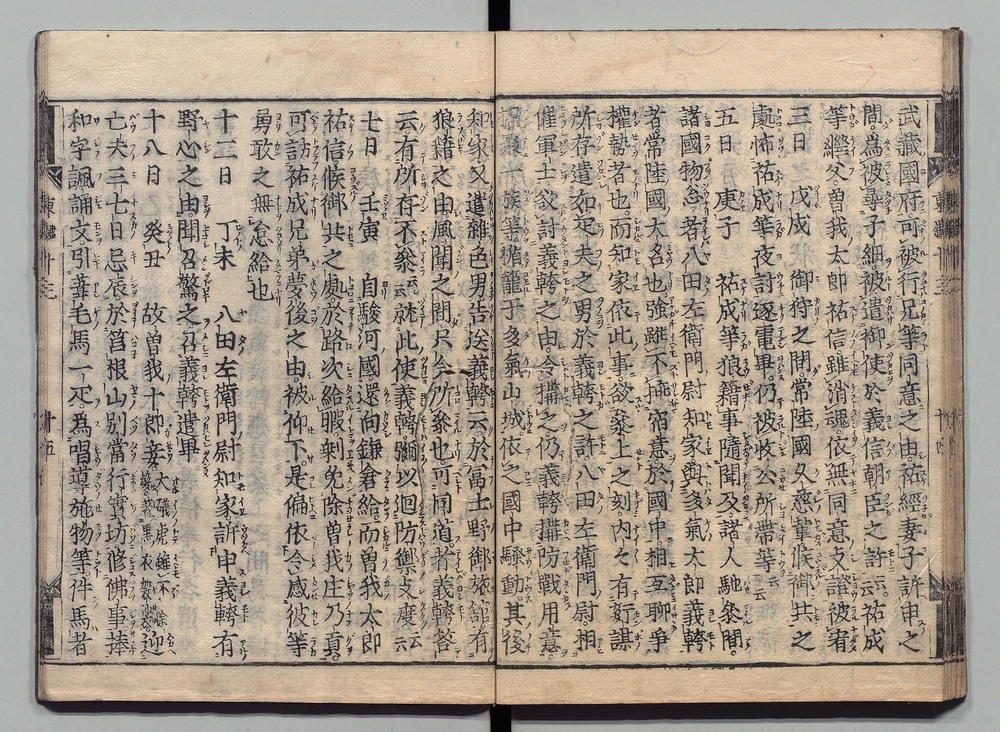 武藏國府可被行兄等同意之由祐經妻子訴申之
間爲被尋子細被遣御使於義信朝臣之許云祐成
等繼父曽我太郎祐信雖消魂依無同意支證被宥
三日　戊戌　御狩之間常陸國久慈輩候御共之
處怖祐成等夜討逐電畢仍被收公所帶等云云
五日　庚子　祐成等狼籍事隨聞及諸人馳參間
諸國物怱者八田左衛門尉知家與多氣太郎義幹
者常陸國大名也強雖不挿宿意於國中相互聊爭
權勢者也而知家依此事欲參上之刻內々有奸謀
所存遣如疋夫之男於義幹之許八田左衛門尉相
催軍士欲討義幹之由令搆之仍義幹搆防戰用意
一族等楯籠于多氣山城依之國中騷動其後
知家又遣雜色男告送義幹云於冨士野御旅舘有
狼籍之由風聞之間只今所參也可同道者義幹答
云有所存不參云云就此使義幹彌以廻防禦支度云云
七日　壬寅　自駿河國還向鎌倉給而曽我太郎
祐信候御共之處於路次給暇剰免除曽我庄乃貢
可訪祐成兄弟夢後之由被仰下是偏依令感彼等
勇敢之無怠給也
十二日　丁未　八田左衛門尉知家訴申義幹有
野心之由聞召驚之召義幹遣畢
十八日　癸丑　故曽我十郎妾大礒虎雖不除髮著黒衣袈裟迎
亡夫三七日忌辰於筥根山別當行實坊修佛事捧
和字諷誦文引葦毛馬一疋爲唱導施物等件馬者
東鑑十三
十四
東鑑十三
十五